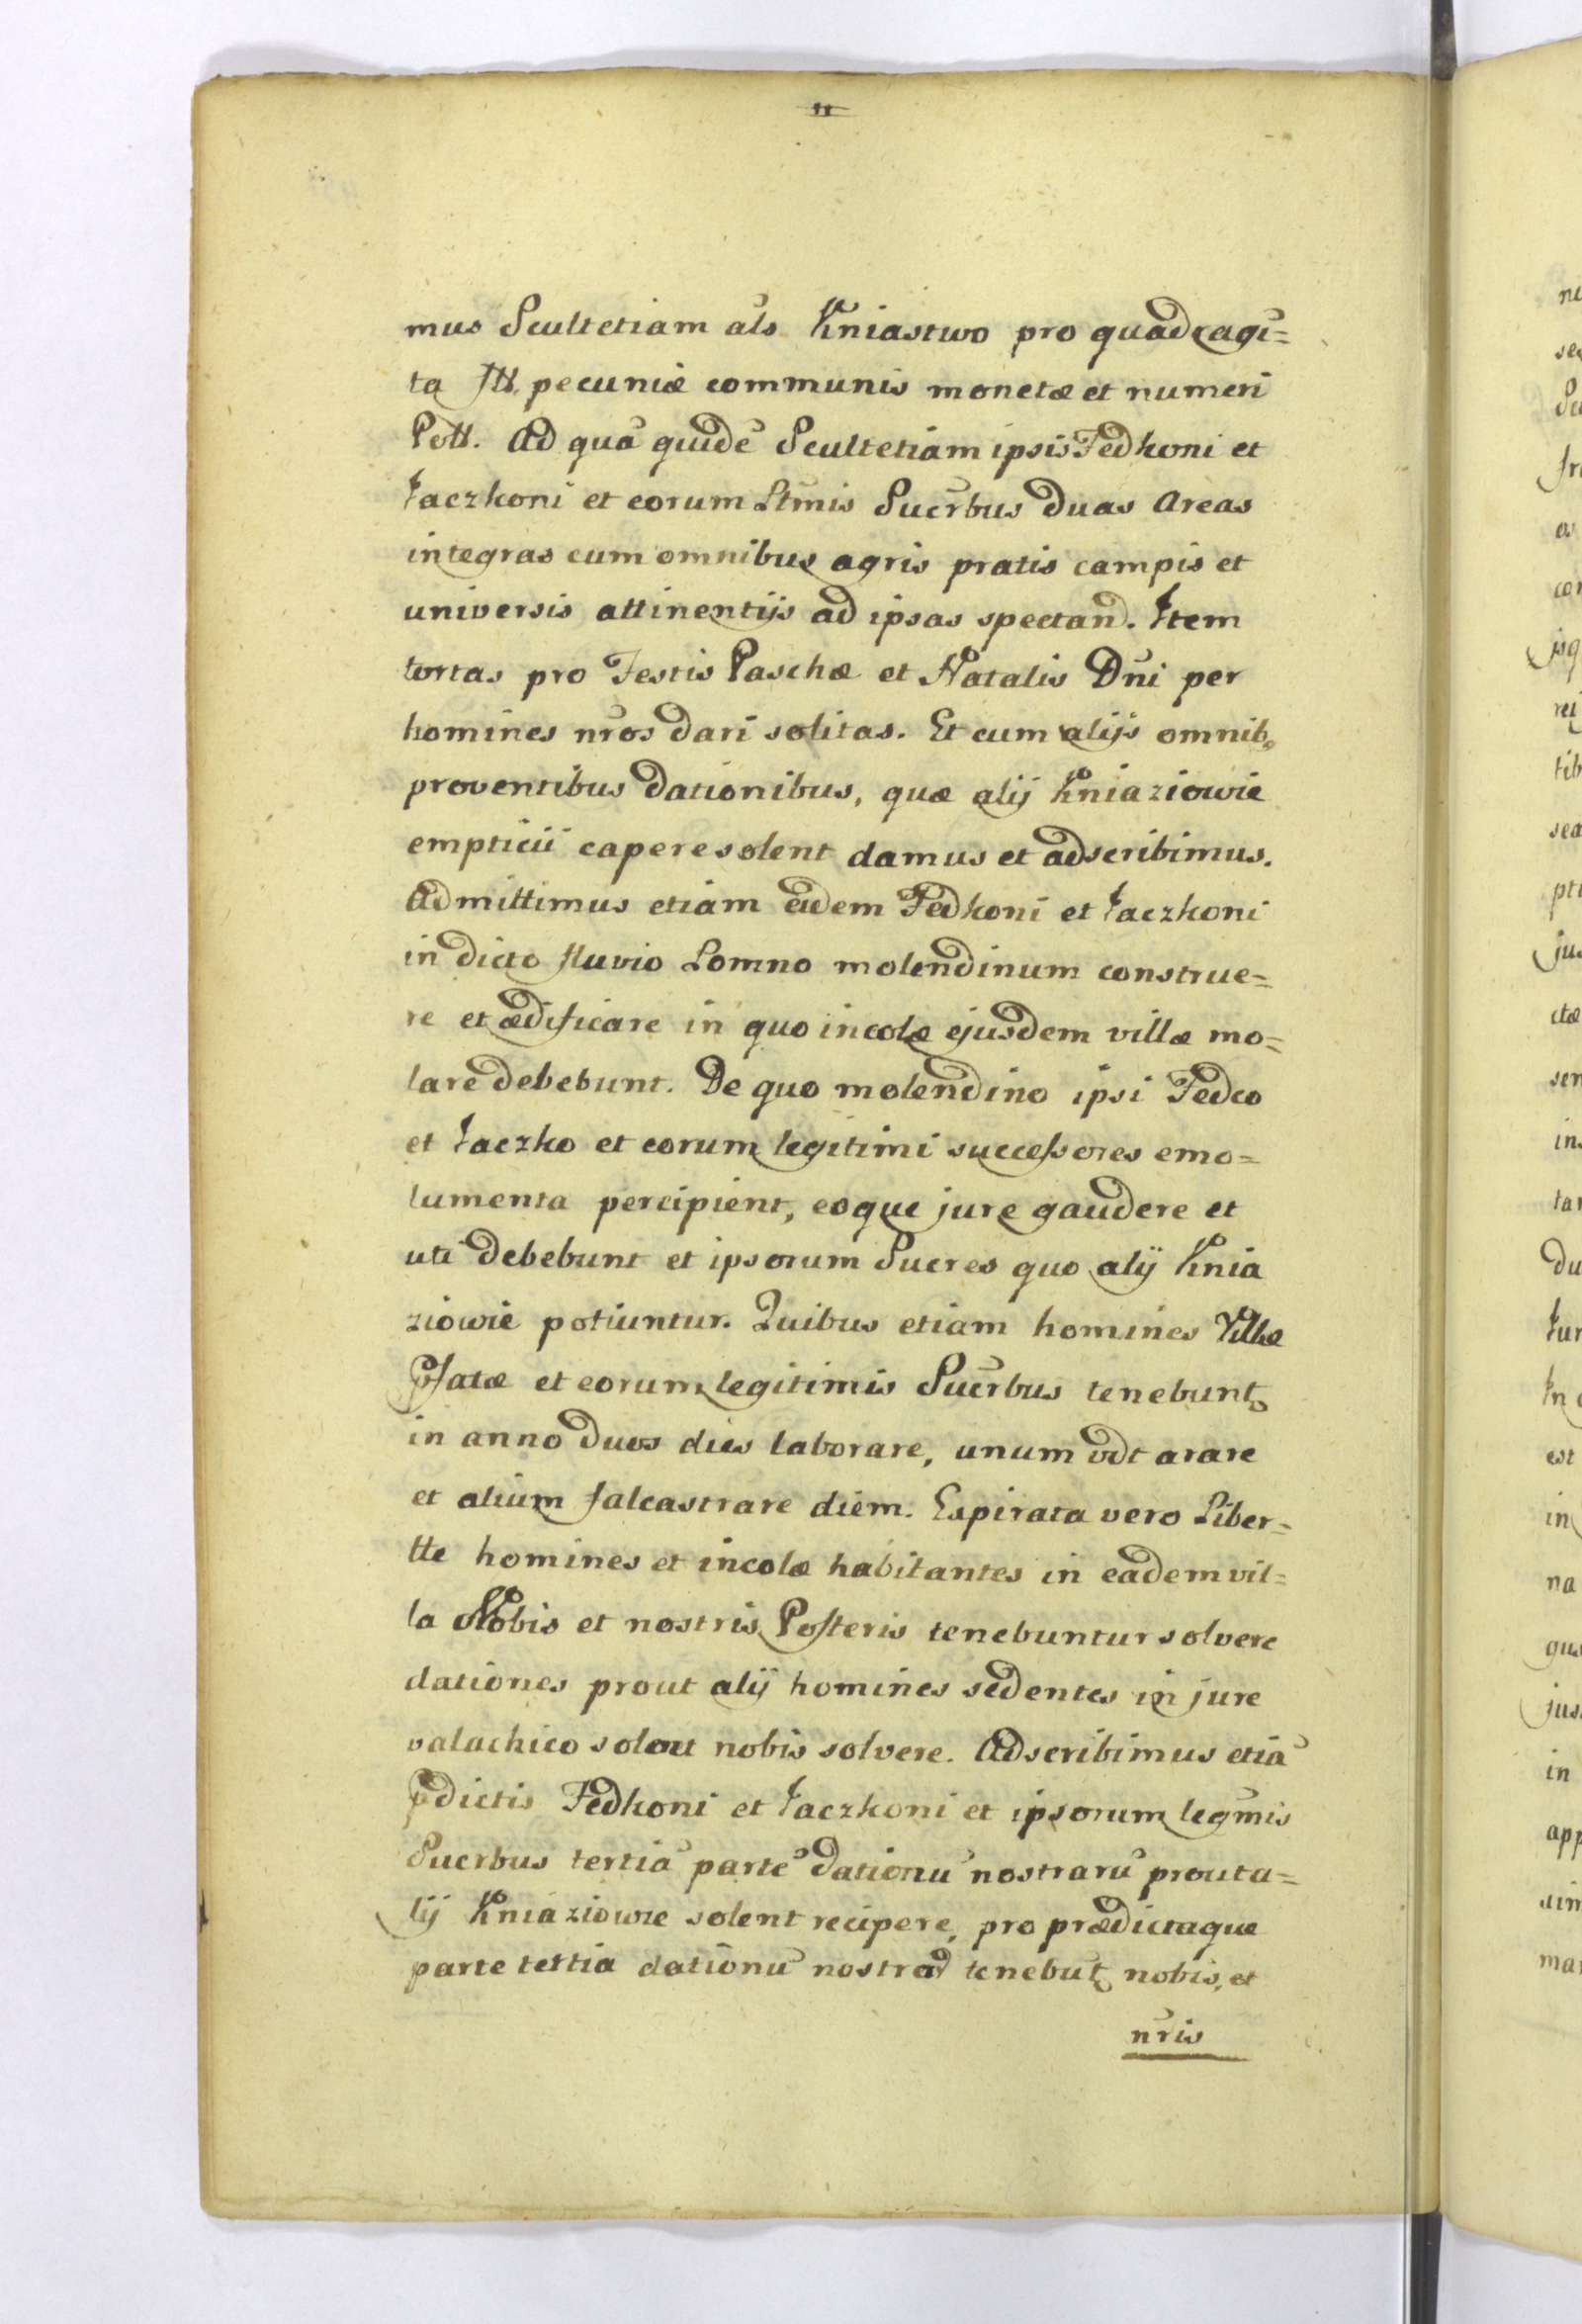 mus Scultetiam als Kniastwo pro quadragi=
ta fll. pecuniæ communis monetæ et numeri
Poll. Ad quā quidē Scultetiam ipsis Fedkoni et
Jaczkoni et eorum Ltmis Sucrbus duas Areas
integras cum omnibus agris pratis campis et
universis attinentijs ad ipsas spectand. Item
tortas pro Festis Paschæ et Natalis Dni per
homines nros dari solitas. Et cum alijs omnib,
proventibus dationibus, quæ alij Kniaziowie
empticii capere solent damus et adscribimus.
Admittimus etiam eidem Fedkoni et Jaczkoni
in dicto fluvio Lomno molendinum construe=
re et ædificare in quo incolæ ejusdem villæ mo=
lare debebunt. De quo molendino ipsi Fedco
et Jaczko et eorum legitimi successores emo=
lumenta percipient, eoque jure gaudere et
uti debebunt et ipsorum Sucres quo alij Knia
ziowie potiuntur. Quibus etiam homines Villæ
Pfatæ et eorum legitimis Sucrbus tenebunt
in anno duos dies laborare, unum vdt arare
et alium falcastrare diem. Expirata vero Liber=
tte homines et incolæ habitantes in eadem vil=
la Nobis et nostris Posteris tenebuntur solvere
dationes prout alij homines sedentes in jure
valachico solent nobis solvere. Adscribimus etiā
pdictis Fedkoni et Jaczkoni et ipsorum legmis
Sucrbus tertiā partē dationū nostrarū prout a=
lij Kniaziowie solent recipere, pro prædictaque
parte tertia dationū nostrar tenebūt nobis, et
nris